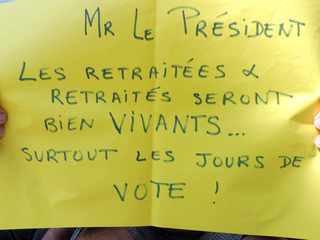 MR LE PRÉSIDENT
LES RETRAITÉES &
RETRAITÉS SERONT
BIEN VIVANTS...
SURTOUT LES JOURS DE
VOTE !